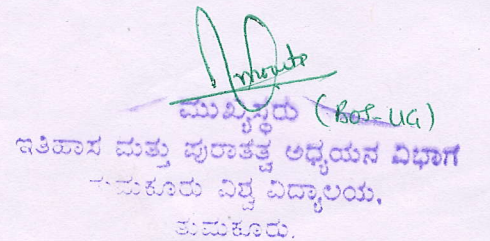 ಮುಖ್ಯಸ್ಥರು (BOS-UG)
ಇತಿಹಾಸ ಮತ್ತು ಪುರಾತತ್ವ ಅಧ್ಯಯನ ವಿಭಾಗ
ತುಮಕೂರು ವಿಶ್ವ ವಿದ್ಯಾಲಯ,
ತುಮಕೂರು.